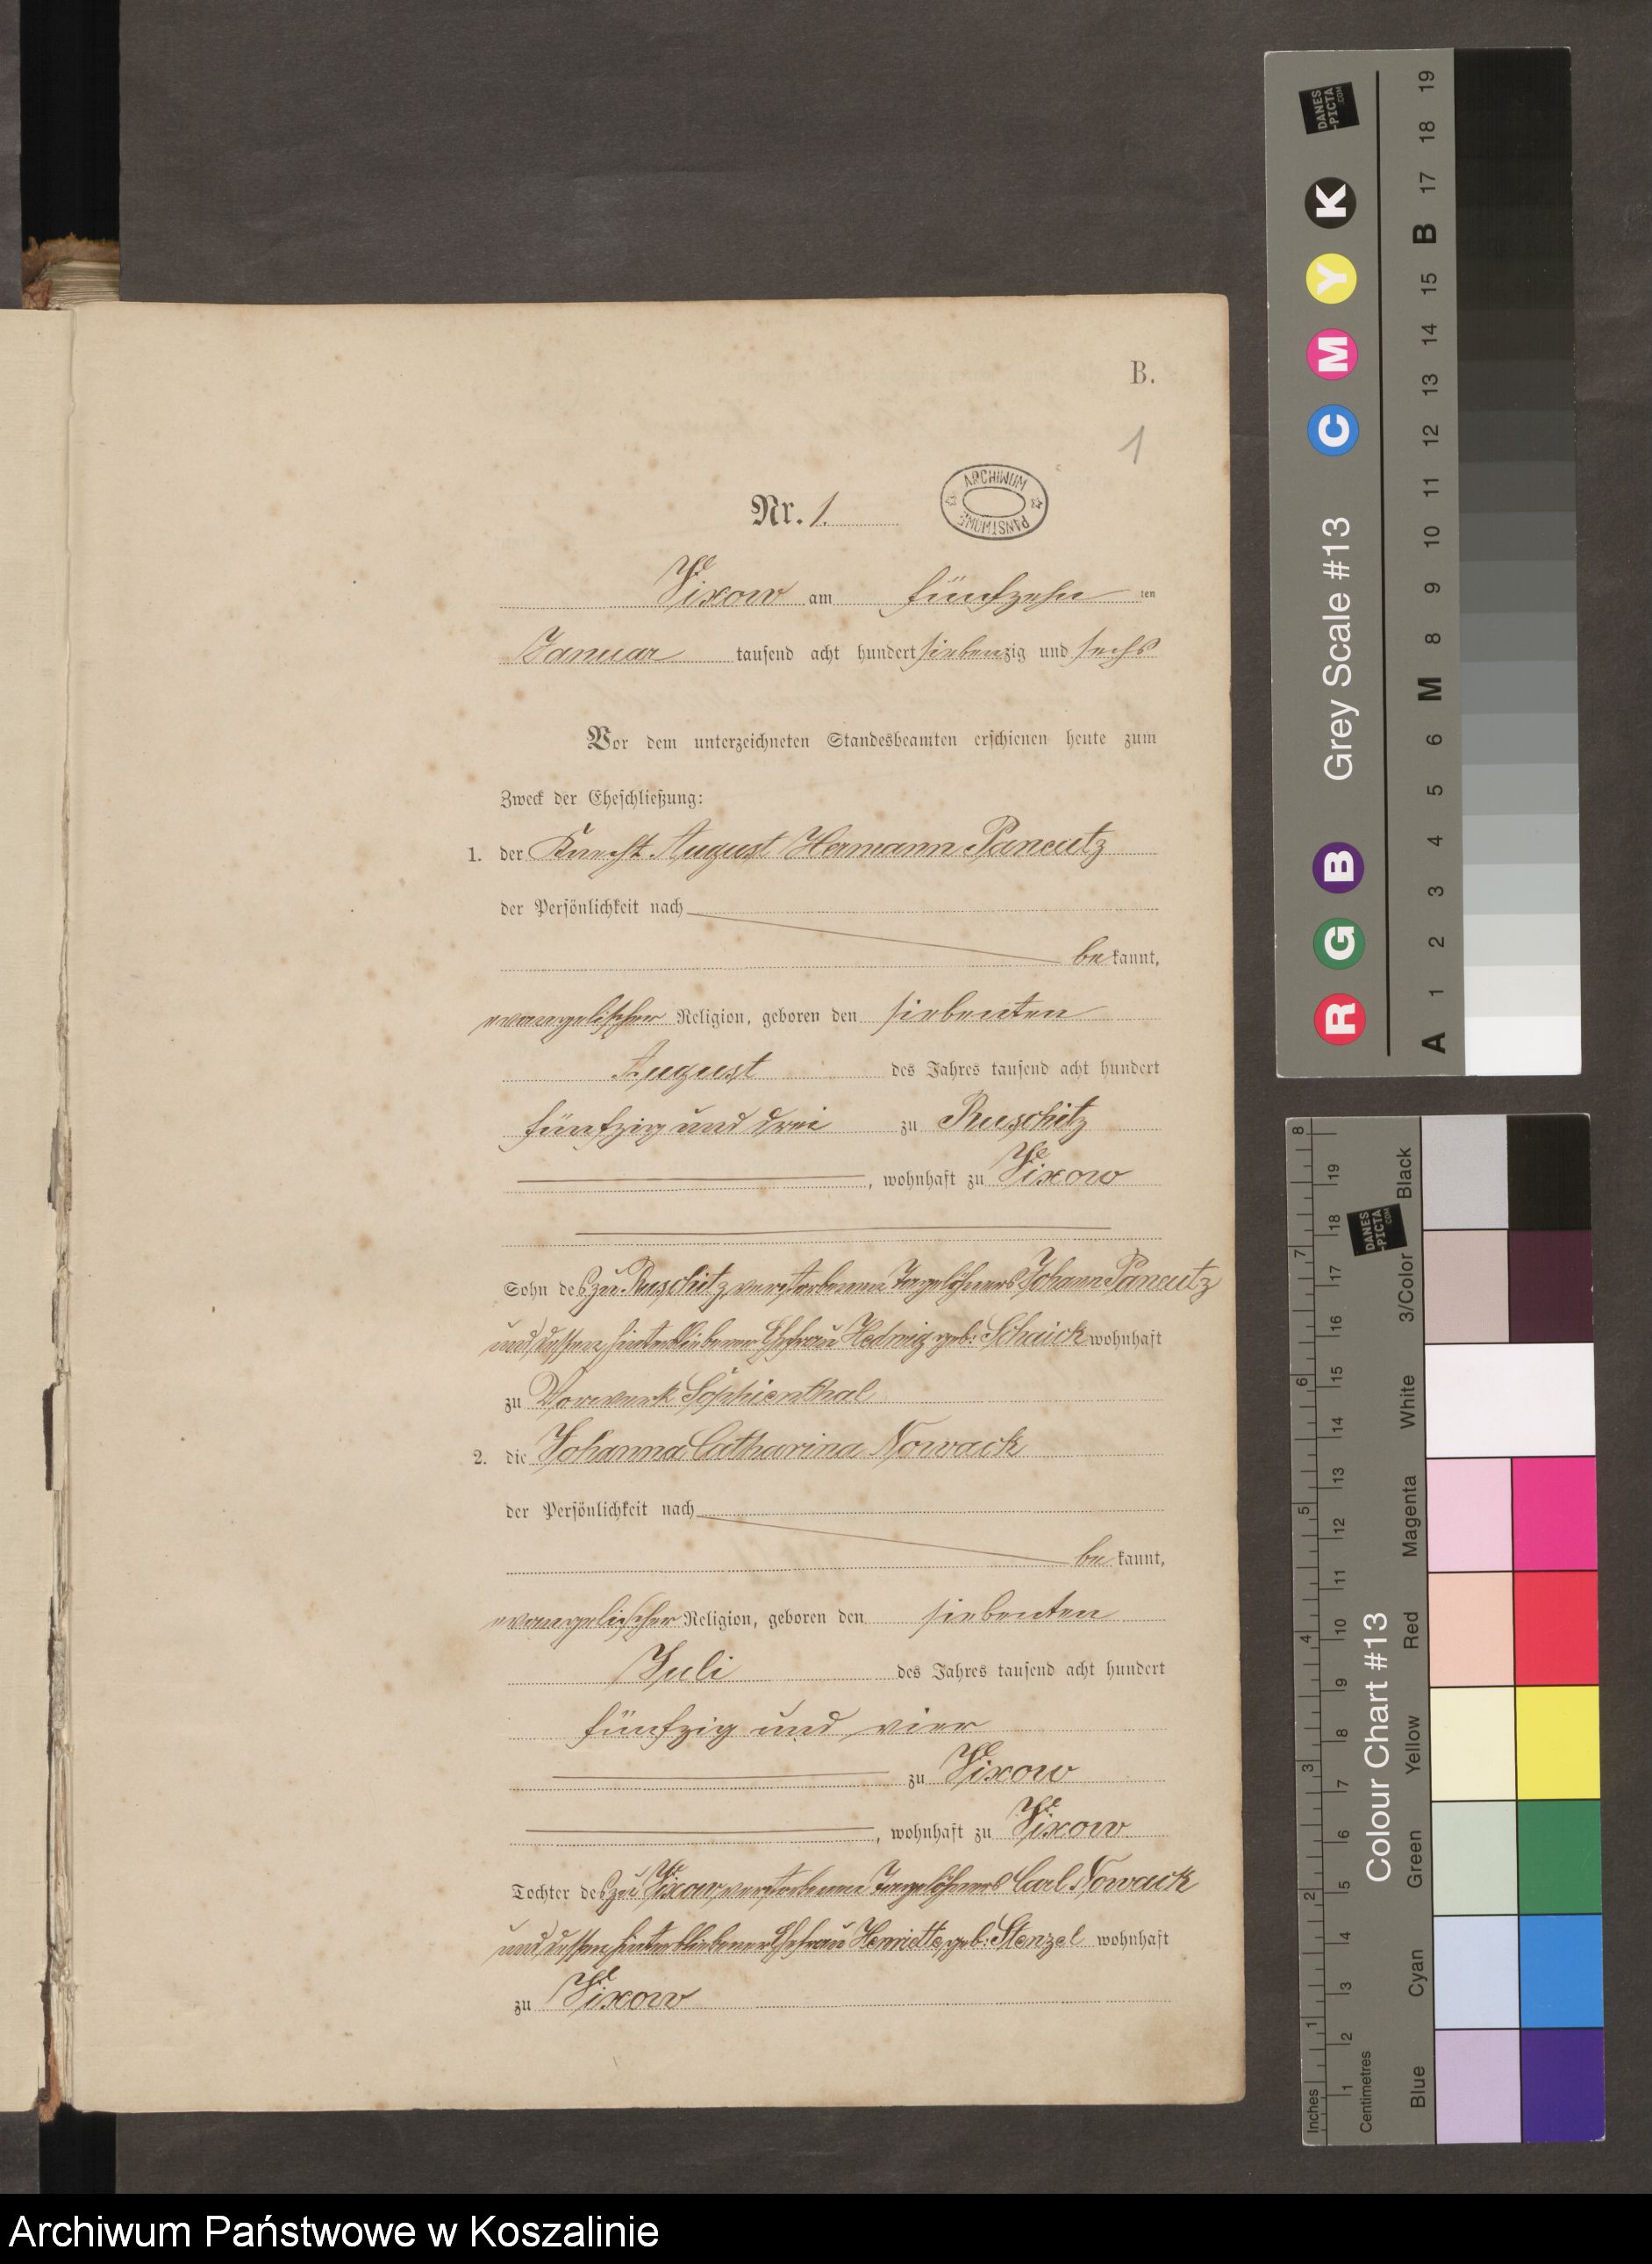 B.
1
Nr. 1.
ARCHIWUM PAŃSTWOWE
Vixow am fünfzehn ten
Januar tausend acht hundert siebenzig und sechs
Vor dem unterzeichneten Standesbeamten erschienen heute zum
Zweck der Eheschließung:
1. der Knecht August Hermann Pancutz
der Persönlichkeit nach
be kannt,
evangelischer Religion, geboren den siebenten
August des Jahres tausend acht hundert
fünfzig und drei zu Ruschitz
, wohnhaft zu Vixow
Sohn des zu Ruschitz verstorbenen Tagelöhners Johann Pancutz
und dessen hinterbliebener Ehefrau Hedwig geb: Schaick wohnhaft
zu Vorwerk Sophienthal
2. die Johanna Catharina Nowack
der Persönlichkeit nach
be kannt,
evangelischer Religion, geboren den siebenten
Juli des Jahres tausend acht hundert
fünfzig und vier
zu Vixow
, wohnhaft zu Vixow
Tochter des zu Vixow verstorbenen Tagelöhners Carl Nowack
und dessen hinterbliebener Ehefrau Henriette geb: Stenzel wohnhaft
zu Vixow
DANES
-PICTA
.COM
R G B Grey Scale #13 C M Y K
A 1 2 3 4 5 6 M 8 9 10 11 12 13 14 15 B 17 18 19
DANES
-PICTA
.COM
Colour Chart #13
Blue Cyan Green Yellow Red Magenta White 3/Color Black
Inches 1 2 3 4 5 6 7 8
Centimetres 1 2 3 4 5 6 7 8 9 10 11 12 13 14 15 16 17 18 19
Archiwum Państwowe w Koszalinie